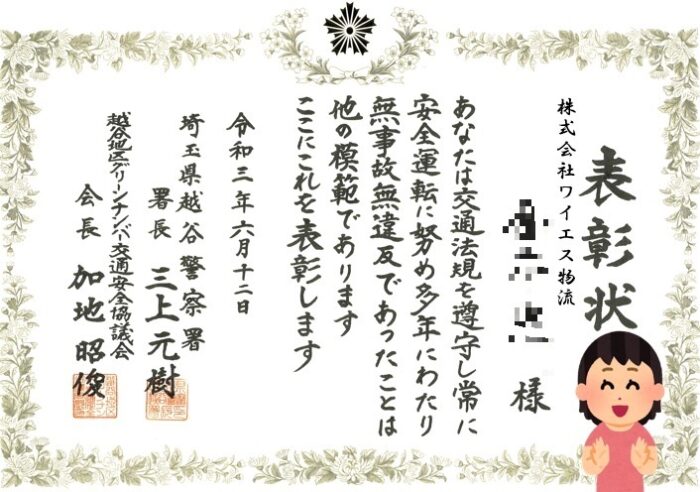 表彰状
株式会社ワイエス物流
様
あなたは交通法規を遵守し常に
安全運転に努め多年にわたり
無事故無違反であったことは
他の模範であります
ここにこれを表彰します
令和三年六月十二日
埼玉県越谷警察署
署長 三上元樹
越谷地区グリーンナンバー交通安全協議会
会長 加地昭俊